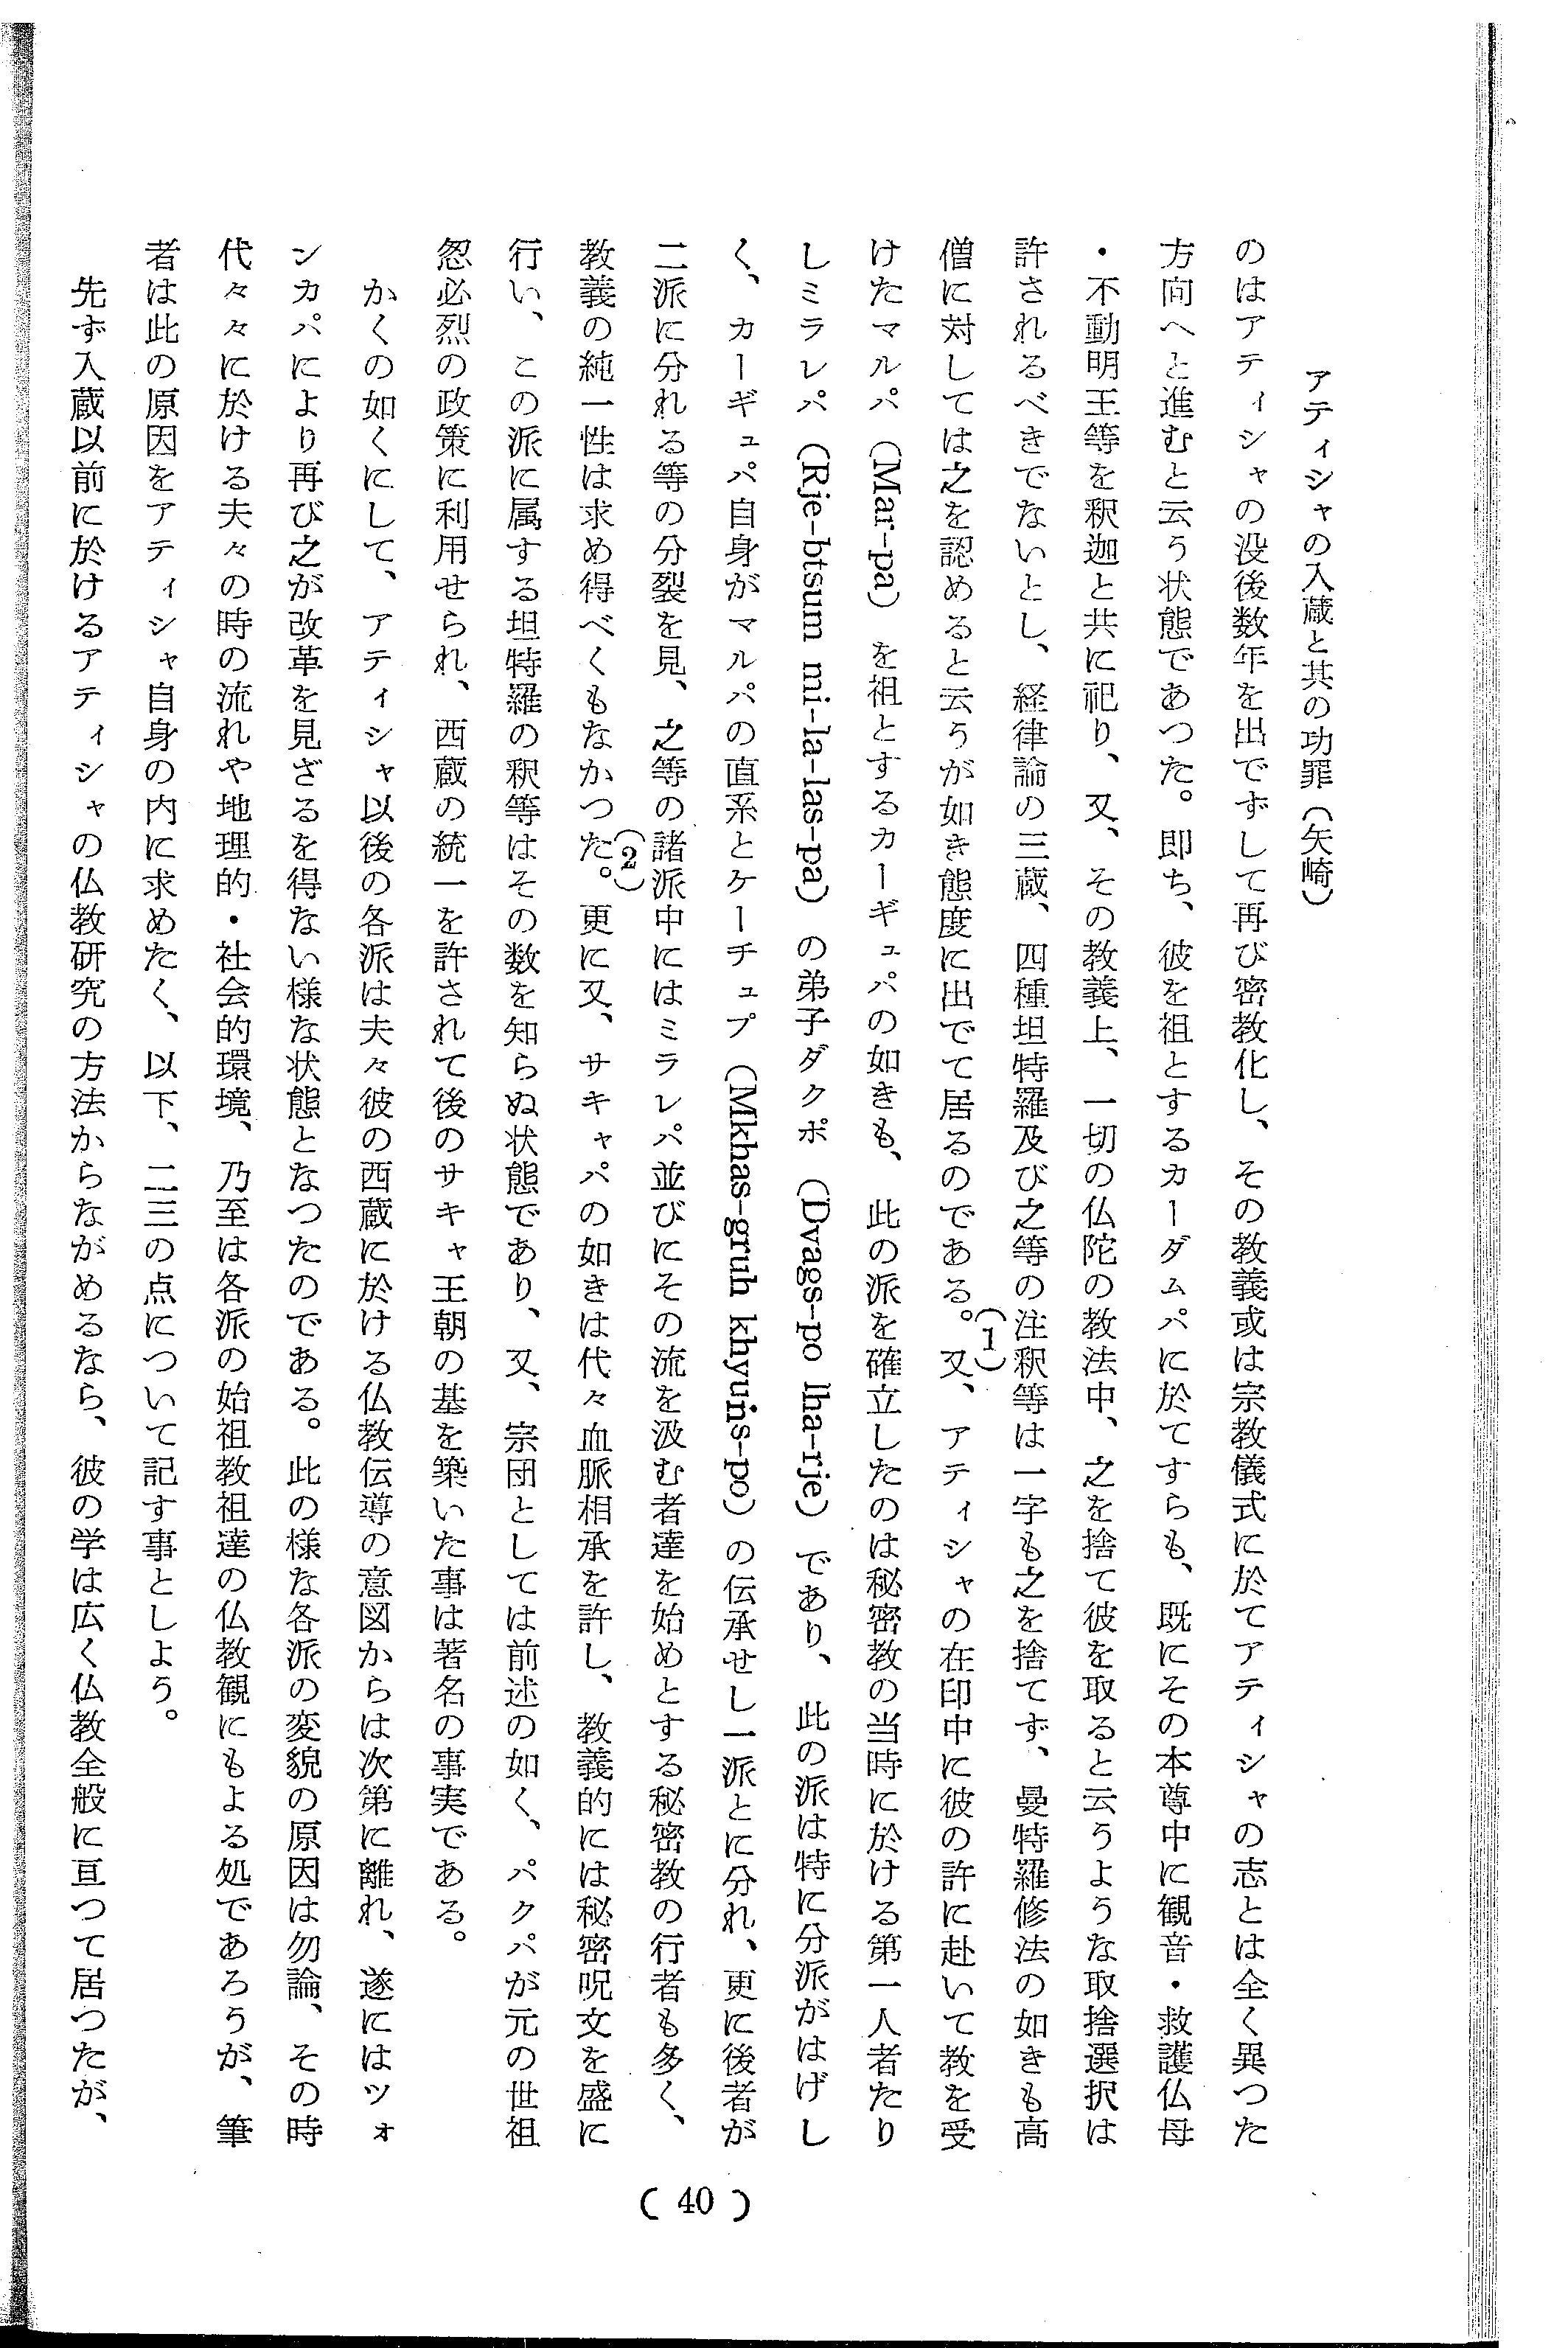 アティシャの入蔵と其の功罪（矢崎）
のはアティシャの没後数年を出でずして再び密教化し、その教義或は宗教儀式に於てアティシャの志とは全く異つた
方向へと進むと云う状態であつた。即ち、彼を祖とするカーダムパに於てすらも、既にその本尊中に観音・救護仏母
・不動明王等を釈迦と共に祀り、又、その教義上、一切の仏陀の教法中、之を捨て彼を取ると云うような取捨選択は
許されるべきでないとし、経律論の三蔵、四種坦特羅及び之等の注釈等は一字も之を捨てず、曼特羅修法の如きも高
僧に対しては之を認めると云うが如き態度に出でて居るのである。(1)又、アティシャの在印中に彼の許に赴いて教を受
けたマルパ（Mar-pa）を祖とするカーギュパの如きも、此の派を確立したのは秘密教の当時に於ける第一人者たり
しミラレパ（Rje-btsum mi-la-las-pa）の弟子ダクポ（Dvags-po lha-rje）であり、此の派は特に分派がはげし
く、カーギュパ自身がマルパの直系とケーチュプ（Mkhas-gruh khyuṅs-po）の伝承せし一派とに分れ、更に後者が
二派に分れる等の分裂を見、之等の諸派中にはミラレパ並びにその流を汲む者達を始めとする秘密教の行者も多く、
教義の純一性は求め得べくもなかつた。(2)更に又、サキャパの如きは代々血脈相承を許し、教義的には秘密呪文を盛に
行い、この派に属する坦特羅の釈等はその数を知らぬ状態であり、又、宗団としては前述の如く、パクパが元の世祖
忽必烈の政策に利用せられ、西蔵の統一を許されて後のサキャ王朝の基を築いた事は著名の事実である。
かくの如くにして、アティシャ以後の各派は夫々彼の西蔵に於ける仏教伝導の意図からは次第に離れ、遂にはツォ
ンカパにより再び之が改革を見ざるを得ない様な状態となつたのである。此の様な各派の変貌の原因は勿論、その時
代々々に於ける夫々の時の流れや地理的・社会的環境、乃至は各派の始祖教祖達の仏教観にもよる処であろうが、筆
者は此の原因をアティシャ自身の内に求めたく、以下、二三の点について記す事としよう。
先ず入蔵以前に於けるアティシャの仏教研究の方法からながめるなら、彼の学は広く仏教全般に亘つて居つたが、
( 40 )